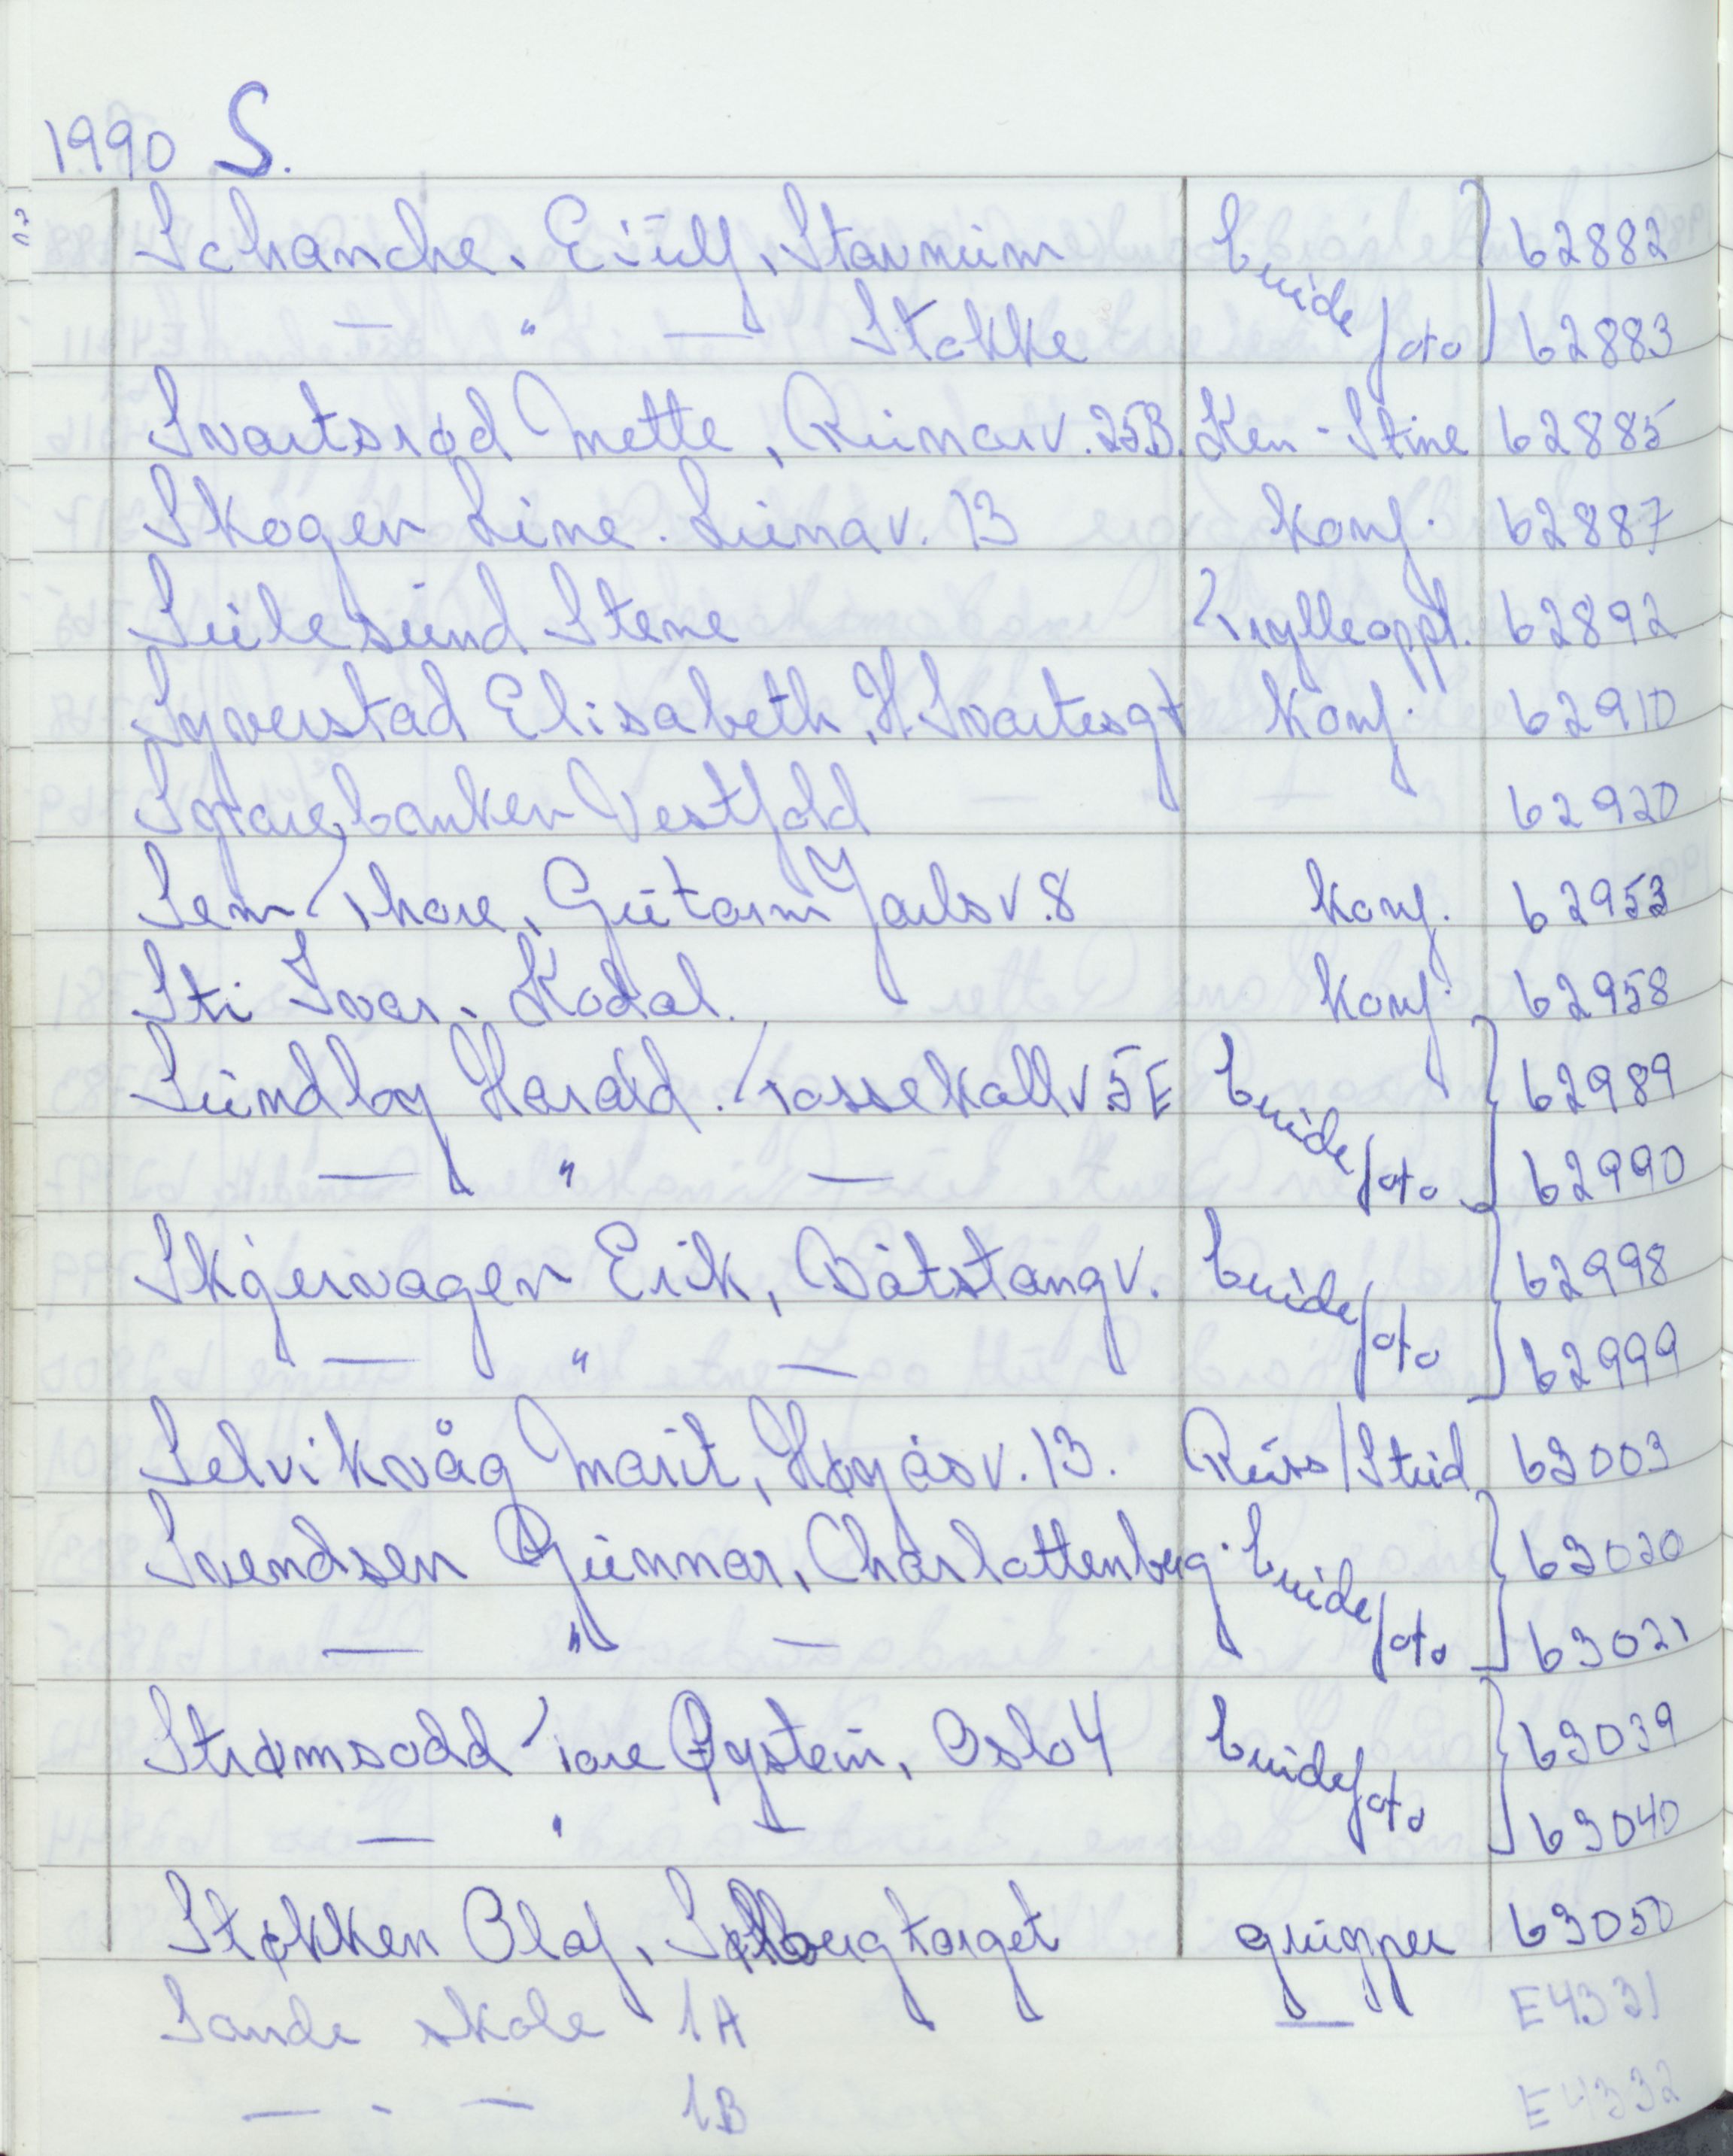 1990 S.
Schanche, Eiulf, Stavnum brude 62882
— " — Stokke foto 62883
Svartsrød Mette, Runarv. 25B. Ken-Stine 62885
Skogen Line. Lunav. 13 konf. 62887
Sulesund Stene Trylleoppt. 62892
Syverstad Elisabeth, H. Svartesgt konf. 62910
Sparebanken Vestfold 62920
Sem Thore, Gutorm Jarlsv. 8 konf. 62953
Sti Ivar, Kodal. konf. 62958
Sundby Harald. Tassekallv. 5E brude 62989
— " — foto 62990
Skjervagen Erik, Båtstangv. brude 62998
— " — foto 62999
Selvikvåg Marit, Høyåsv. 13. Russ/Stud 63003
Svendsen Gunnar, Charlottenberg. brude 63020
— " — foto 63021
Strømsodd Tore Øystein, Oslo 4 brudefoto 63039
— " — 63040
Støkken Olaf, torget grupper 63050
Sande skole 1A — E4331
— " — 1B E4332